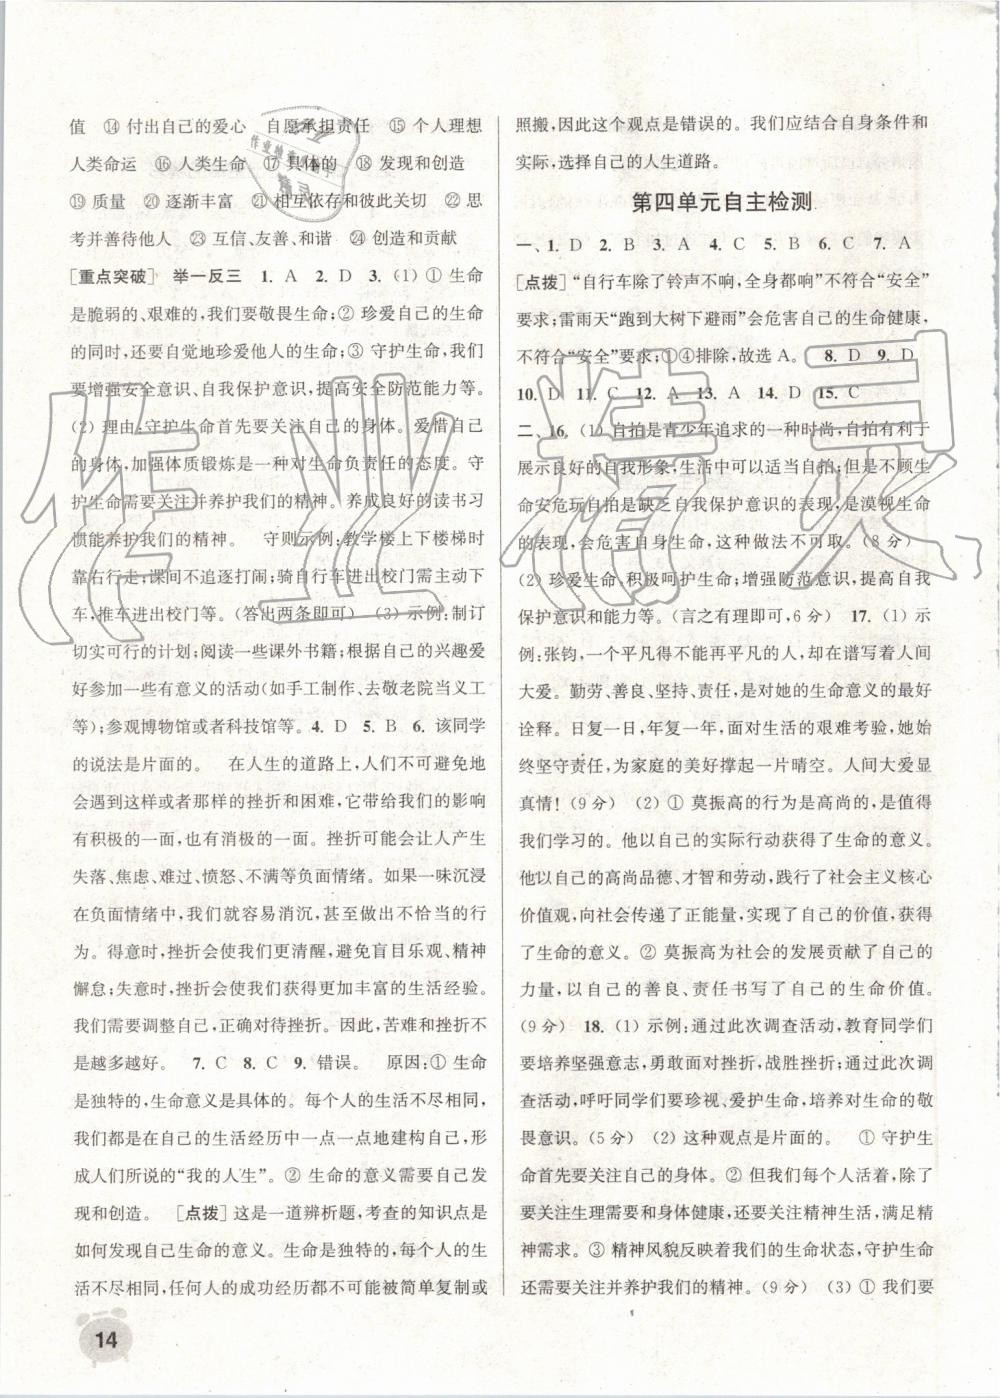 值　⑭ 付出自己的爱心　自愿承担责任　⑮ 个人理想
人类命运　⑯ 人类生命　⑰ 具体的　⑱ 发现和创造
⑲ 质量　⑳ 逐渐丰富　㉑ 相互依存和彼此关切　㉒ 思
考并善待他人　㉓ 互信、友善、和谐　㉔ 创造和贡献
[重点突破]　举一反三　1. A　2. D　3. (1) ① 生命
是脆弱的、艰难的,我们要敬畏生命;② 珍爱自己的生命
的同时,还要自觉地珍爱他人的生命;③ 守护生命,我们
要增强安全意识、自我保护意识,提高安全防范能力等。
(2) 理由:守护生命首先要关注自己的身体。爱惜自己
的身体,加强体质锻炼是对生命负责任的态度。守
护生命需要关注并养护我们的精神。养成良好的读书习
惯能养护我们的精神。　守则示例:教学楼上下楼梯时
靠右行走;课间不追逐打闹;骑自行车进出校门需主动下
车,推车进出校门等。(答出两条即可)　(3) 示例:制订
切实可行的计划;阅读一些课外书籍;根据自己的兴趣爱
好参加一些有意义的活动(如手工制作、去敬老院当义工
等);参观博物馆或者科技馆等。4. D　5. B　6. 该同学
的说法是片面的。　在人生的道路上,人们不可避免地
会遇到这样或者那样的挫折和困难,它带给我们的影响
有积极的一面,也有消极的一面。挫折可能会让人产生
失落、焦虑、难过、愤怒、不满等负面情绪。如果一味沉浸
在负面情绪中,我们就容易消沉,甚至做出不恰当的行
为。得意时,挫折会使我们更清醒,避免盲目乐观、精神
懈怠;失意时,挫折会使我们获得更加丰富的生活经验。
我们需要调整自己,正确对待挫折。因此,苦难和挫折不
是越多越好。　7. C　8. C　9. 错误。　原因:① 生命
是独特的,生命意义是具体的。每个人的生活不尽相同,
我们都是在自己的生活经历中一点一点地建构自己,形
成人们所说的“我的人生”。② 生命的意义需要自己发
现和创造。　[点拨] 这是一道辨析题,考查的知识点是
如何发现自己生命的意义。生命是独特的,每个人的生
活不尽相同,任何人的成功经历都不可能被简单复制或
14
照搬,因此这个观点是错误的。我们应结合自身条件和
实际,选择自己的人生道路。
第四单元自主检测
一、1. D　2. B　3. A　4. C　5. B　6. C　7. A
[点拨] “自行车除了铃声不响,全身都响”不符合“安全”
要求;雷雨天“跑到大树下避雨”会危害自己的生命健康,
不符合“安全”要求;①④排除,故选 A。　8. D　9. D
10. D　11. C　12. A　13. A　14. D　15. C
二、16. (1) 自拍是青少年追求的一种时尚,自拍有利于
展示良好的自我形象,生活中可以适当自拍;但是不顾生
命安危玩自拍是缺乏自我保护意识的表现,是漠视生命
的表现,会危害自身生命,这种做法不可取。(8 分)
(2) 珍爱生命,积极呵护生命;增强防范意识,提高自我
保护意识和能力等。(言之有理即可,6 分)　17. (1) 示
例:张钧,一个平凡得不能再平凡的人,却在谱写着人间
大爱。勤劳、善良、坚持、责任,是对她的生命意义的最好
诠释。日复一日,年复一年,面对生活的艰难考验,她始
终坚守责任,为家庭的美好撑起一片晴空。人间大爱显
真情!(9 分)　(2) ① 莫振高的行为是高尚的,是值得
我们学习的。他以自己的实际行动获得了生命的意义。
他以自己的高尚品德、才智和劳动,践行了社会主义核心
价值观,向社会传递了正能量,实现了自己的价值,获得
了生命的意义。② 莫振高为社会的发展贡献了自己的
力量,以自己的善良、责任书写了自己的生命价值。
(9分)　18. (1) 示例:通过此次调查活动,教育同学们
要培养坚强意志,勇敢面对挫折,战胜挫折;通过此次调
查活动,呼吁同学们要珍视、爱护生命,培养对生命的敬
畏意识。(5 分)　(2) 这种观点是片面的。　① 守护生
命首先要关注自己的身体。② 但我们每个人活着,除了
要关注生理需要和身体健康,还要关注精神生活,满足精
神需求。③ 精神风貌反映着我们的生命状态,守护生命
还需要关注并养护我们的精神。(9分)　(3) ① 我们要
作业精灵